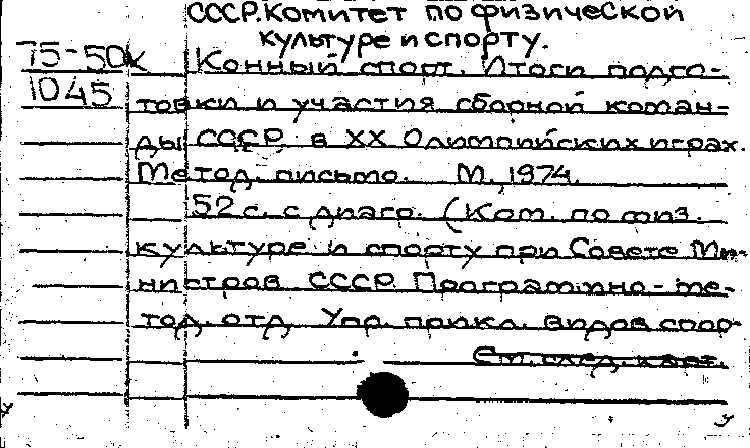 СССР. Комитет по физической
культуре и спорту.
75-50к Конный спорт. Итоги подго-
1045 товки и участия сборной коман-
ды СССР в XX Олимпийских играх.
Метод. письмо. М., 1974.
52 с. с диагр. (Ком. по физ.
культуре и спорту при Совете Ми-
нистров СССР. Программно-ме-
тод. отд. Упр. прикл. видов спор-
См. след. карт.